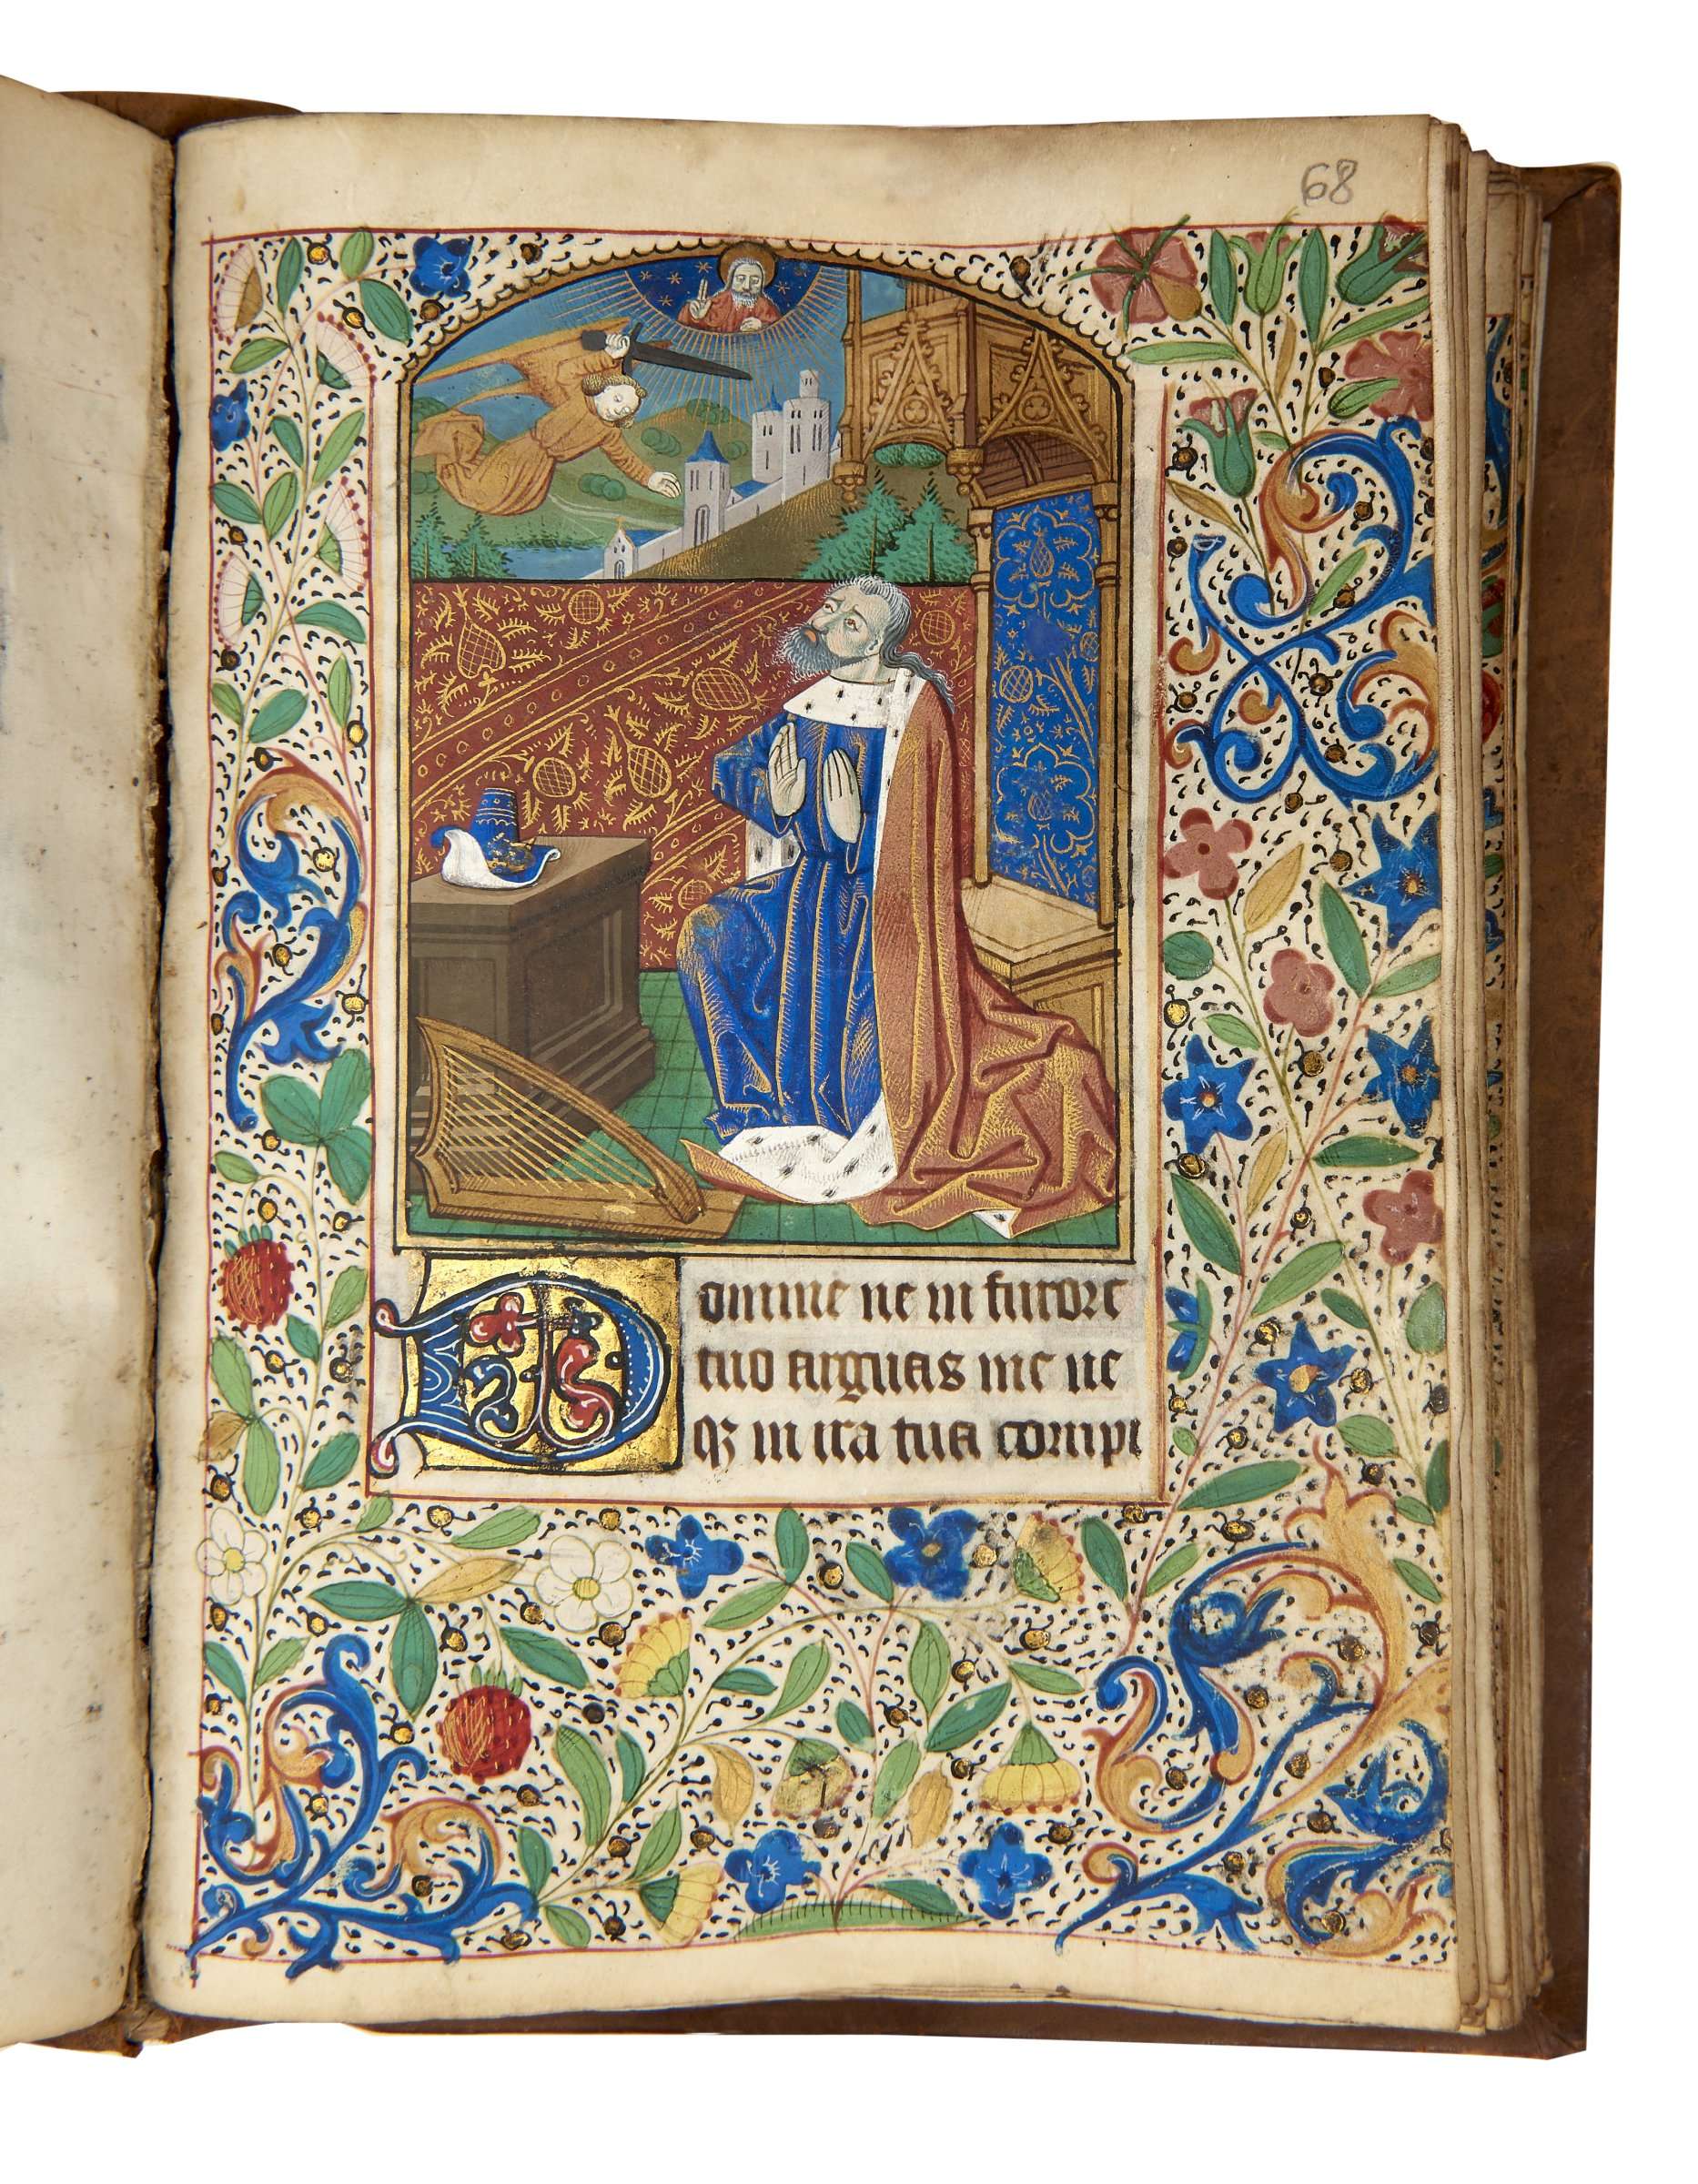 68
Domine ne in furore
tuo arguas me ne
qꝫ in ira tua corripi